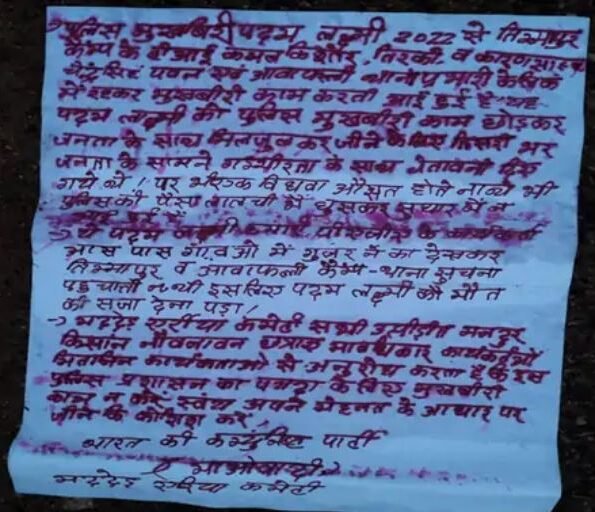 पुलिस मुखबीरी पदम लक्ष्मी 2022 से तिम्मापुर
कैम्प के डी आई कमल किशोर, तिरकी, व कारण
पवन एवं आवापल्ली थाना प्रभारी के
में रहकर मुखबीरी काम करती आई हुई है यह
पदम लक्ष्मी को पुलिस मुखबीरी काम छोडकर
जनता के साथ मिलजुल कर जीने के लिए तिसरा भर
जनता के सामने गम्भीरता के साथ चेतावनी दिए
गये थे। पर एक विधवा औरत होते नाथे भी
पुलिस की पैसा लालची में घुसकर सुधार में न
आई हुई है
-> ये पदम लक्ष्मी हमारे पार्टी के
आस पास गॉवओ में गुजर ने का देखकर
तिम्मापुर व आवापल्ली कैम्प-थाना सुचना
पहुचाती न थी इसलिए पदम लक्ष्मी को मौत
की सजा देना पडा।
-> मद्देड़ एरीया कमेटी सभी उत्पीडीत मजदुर
किसान नौवजावन छात्राऐ मानवधिकार कार्यकर्ताओं
कार्यकताओ से अनुरोध करता है कि इस
पुलिस प्रशासन का के लिए मुखबीरी
काम न करें स्वंय अपने मेहनत के आधार पर
जीने कि कोशिश करें
भारत की कम्युनिष्ट पार्टी
(माओवादी)
मद्देड़ एरिया कमेटी